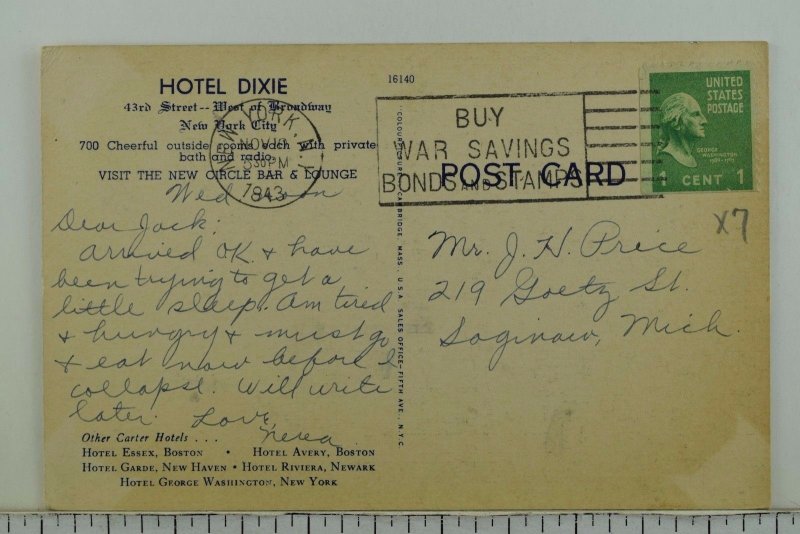 HOTEL DIXIE
43rd Street--West of Broadway
New York City
700 Cheerful outside rooms each with private
bath and radio
VISIT THE NEW CIRCLE BAR & LOUNGE
NEW YORK, N.Y.
NOV 10
530 PM
1943
16140
BUY
WAR SAVINGS
BONDS AND STAMPS
POST CARD
UNITED
STATES
POSTAGE
GEORGE
WASHINGTON
1789-1797
1 CENT 1
X7
Wed. noon
Dear Jack:
Arrived OK. & have
been trying to get a
little sleep. Am tired
& hungry & must go
& eat now before I
collapse. Will write
later. Love,
Neva
Other Carter Hotels . . .
HOTEL ESSEX, BOSTON • HOTEL AVERY, BOSTON
HOTEL GARDE, NEW HAVEN • HOTEL RIVIERA, NEWARK
HOTEL GEORGE WASHINGTON, NEW YORK
CAMBRIDGE MASS. U.S.A. SALES OFFICE-FIFTH AVE., N.Y.C.
Mr. J. H. Price
219 Goetz St.
Saginaw, Mich.